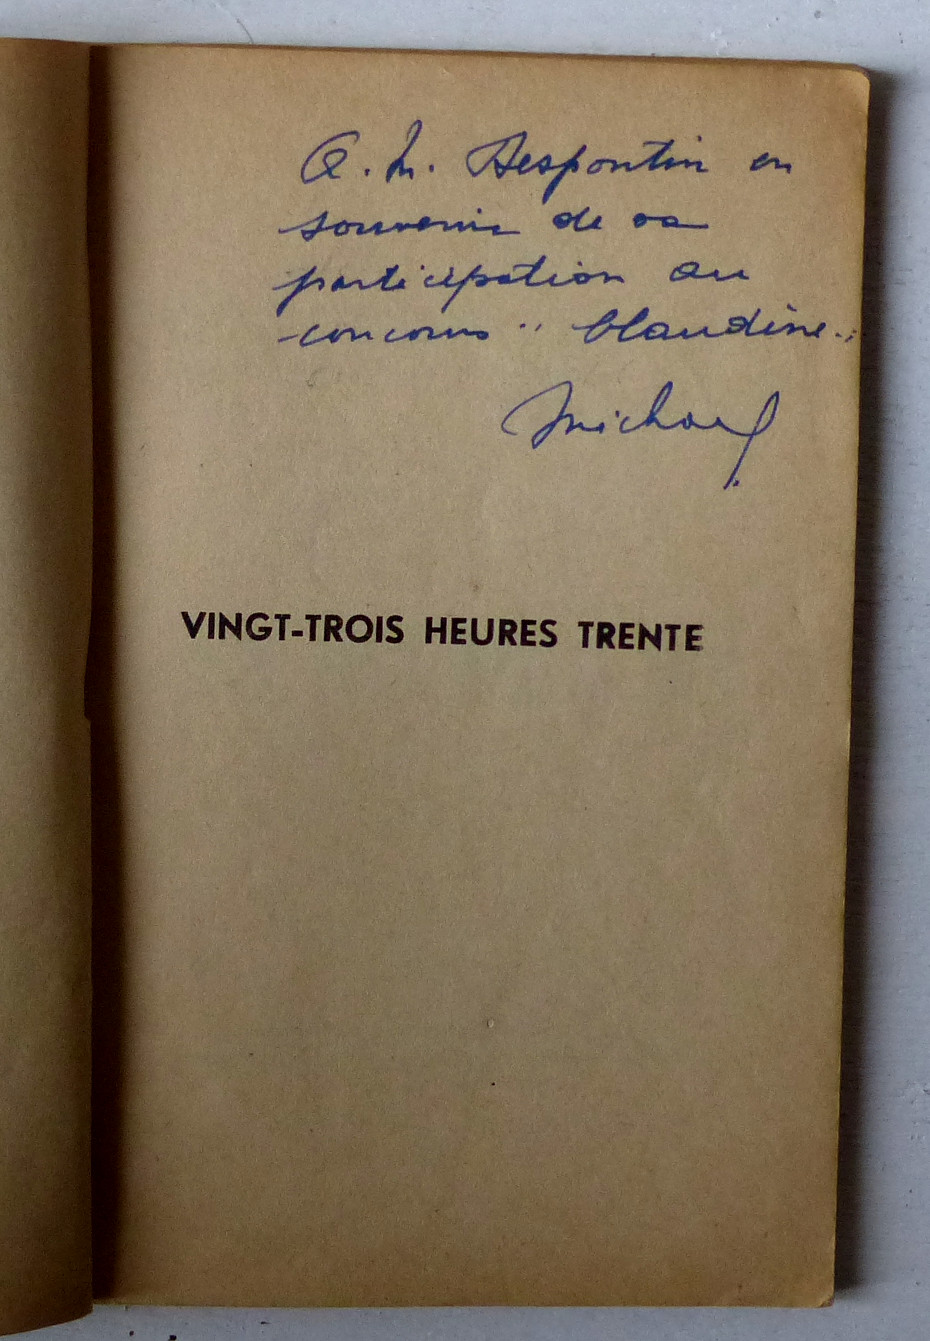 A. M. Despontin en
souvenir de sa
participation au
concours " blaudine.
Michael
VINGT-TROIS HEURES TRENTE